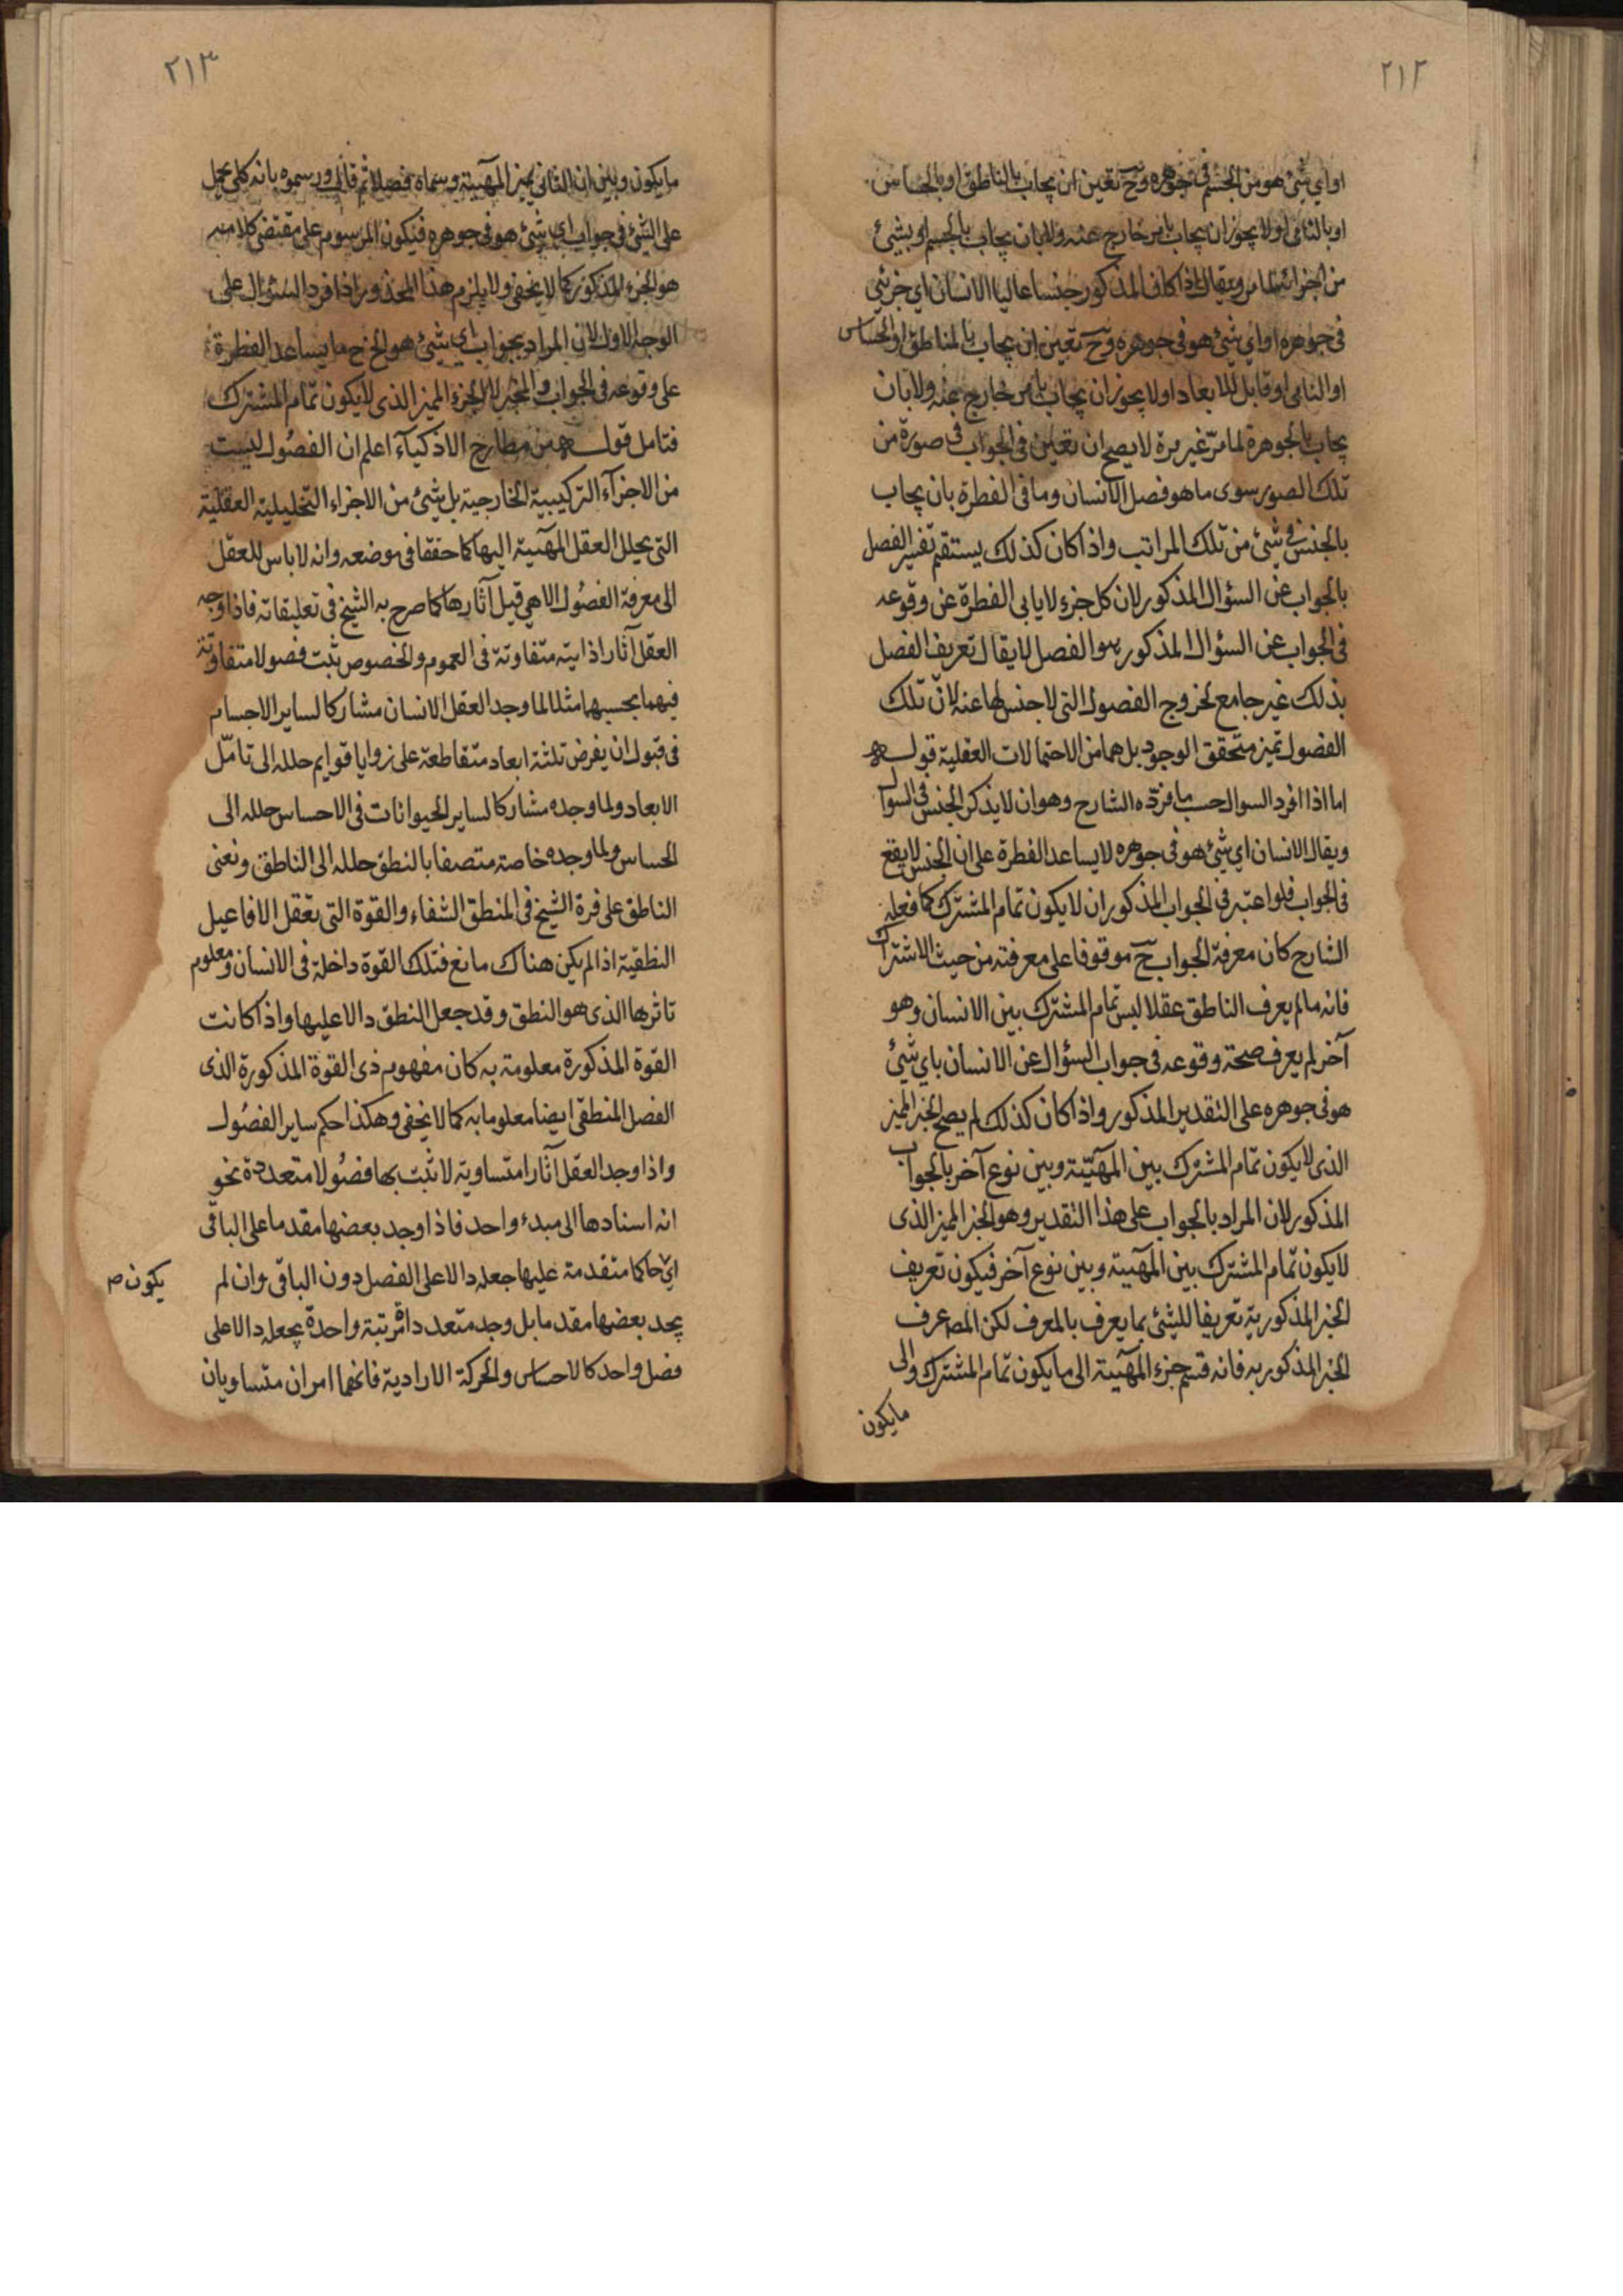 ٢١٢
او اي شئ هو من الجسم في جوهره وح تعين ان يجاب بالناطق او بالحساس
او بالنامى او لا يجوز ان يجاب بامر خارج عنه ولا بان يجاب بالجسم او بشئ
من اجزائه لما مر ويقال اذا كان المذكور جنسا عاليا الانسان اي جزئي
فى جوهره او اي شئ هو فى جوهره وح تعين ان يجاب بالناطق او الحساس
او النامى او قابل للابعاد او لا يجوز ان يجاب بامر خارج عنه ولا بان
يجاب بالجوهرة لما مرّ غير مرة لا يصح ان تعين فى الجواب فى صورة من
تلك الصور سوى ما هو فصل الانسان وما فى الفطرة بان يجاب
بالجنس في شئ من تلك المراتب واذا كان كذلك يستقم تفسير الفصل
بالجواب عن السؤال المذكور لان كل جزء لا يابى الفطرة عن وقوعه
فى الجواب عن السؤال المذكور هو الفصل لا يقال تعريف الفصل
بذلك غير جامع لخروج الفصول التى لا جنس لها عنه لانّ تلك
الفصول تميز متحقق الوجود بل هما من الاحتمالات العقلية قوله
اما اذا افرد السوال حسب ما فرّده الشارح وهو ان لا يذكر الجنس فى السوال
ويقال الانسان اي شئ هو فى جوهره لا يساعد الفطرة على ان الجنس لا يقع
فى الجواب فلو اعتبر فى الجواب المذكور ان لا يكون تمام المشترك كما فعله
الشارح كان معرفة الجواب ح موقوفا على معرفته من حيث الاشتراك
فانه ما لم يعرف الناطق عقلا ليس تمام المشترك بين الانسان وهو
آخر لم يعرف صحة وقوعه فى جواب السؤال عن الانسان باي شئ
هو فى جوهره على التقدير المذكور واذا كان كذلك لم يصح الجزء المميز
الذى لا يكون تمام المشترك بين المهيّة وبين نوع آخر بالجواب
المذكور لان المراد بالجواب على هذا التقدير وهو الجزء المميز الذى
لا يكون تمام المشترك بين المهية وبين نوع آخر فيكون تعريف
الجزء المذكور به تعريفا للشئ بما يعرف بالمعرف لكن المص عرف
الجزء المذكور به فانه قسم جزء المهية الى ما يكون تمام المشترك والى
ما يكون
٢١٣
ما يكون وبين ان الثانى يميز المهية وسماه فصلا ثم قال ورسموه بانه كلى يحمل
على الشئ فى جواب اي شئ هو فى جوهره فيكون المرسوم على مقتضى كلامه
هو الجزء المذكور كما لا يخفى ولا يلزم هذا المحذور اذا افرد السؤال على
الوجه الاول لان المراد بجواب اي شئ هو الخ ح ما يساعد الفطرة
على وقوعه فى الجواب والجزء المميز الذى لا يكون تمام المشترك
فتامل قوله من مطارح الاذكياء اعلم ان الفصُول ليست
من الاجزآء التركيبية الخارجية بل شئ من الاجزاء التحليلية العقلية
التى يحلل العقل المهية اليها كما حققا فى موضعه وانه لا باس للعقل
الى معرفة الفصُول الا هي قبل آثارها كما صرح به الشيخ فى تعليقاته فاذا وجه
العقل آثارا ذاتية متفاوتة فى العموم والخصوص تثبت فصولا متفاوتة
فيهما بحسبهما مثلا لما وجد العقل الانسان مشاركا لساير الاجسام
فى قبول ان يفرض ثلثة ابعاد متقاطعة على زوايا قوايم حلله الى تامّل
الابعاد ولما وجده مشاركا لساير الحيوانات فى الاحساس حلله الى
الحساس ولما وجده خاصة متصفا بالنطق حلله الى الناطق ونعنى
الناطق على فرة الشيخ فى المنطق الشفاء والقوة التى تعقل الافاعيل
النطقية اذا لم يكن هناك مانع فتلك القوة داخلة فى الانسان ومعلوم
تاثرها الذى هو النطق وقد جعل النطق دالا عليها واذا كانت
القوة المذكورة معلومة به كان مفهوم ذى القوة المذكورة الذى
الفصل المنطقى ايضا معلوما به كما لا يخفى وهكذا حكم ساير الفصُول
واذا وجد العقل آثارا متساوية لا تثبت بها فصُولا متعددة نحو
انه اسنادها الى مبدء واحد فاذا وجد بعضها مقدما على الباقى
اي حاكما متقدمة عليها جعله دالا على الفصل دون الباقى وان لم
يكون ص
يجد بعضها مقدما بل وجد متعددا مرتبة واحدة يجعله دالا على
فصل واحد كالاحساس والحركة الارادية فانهما امران متساويان